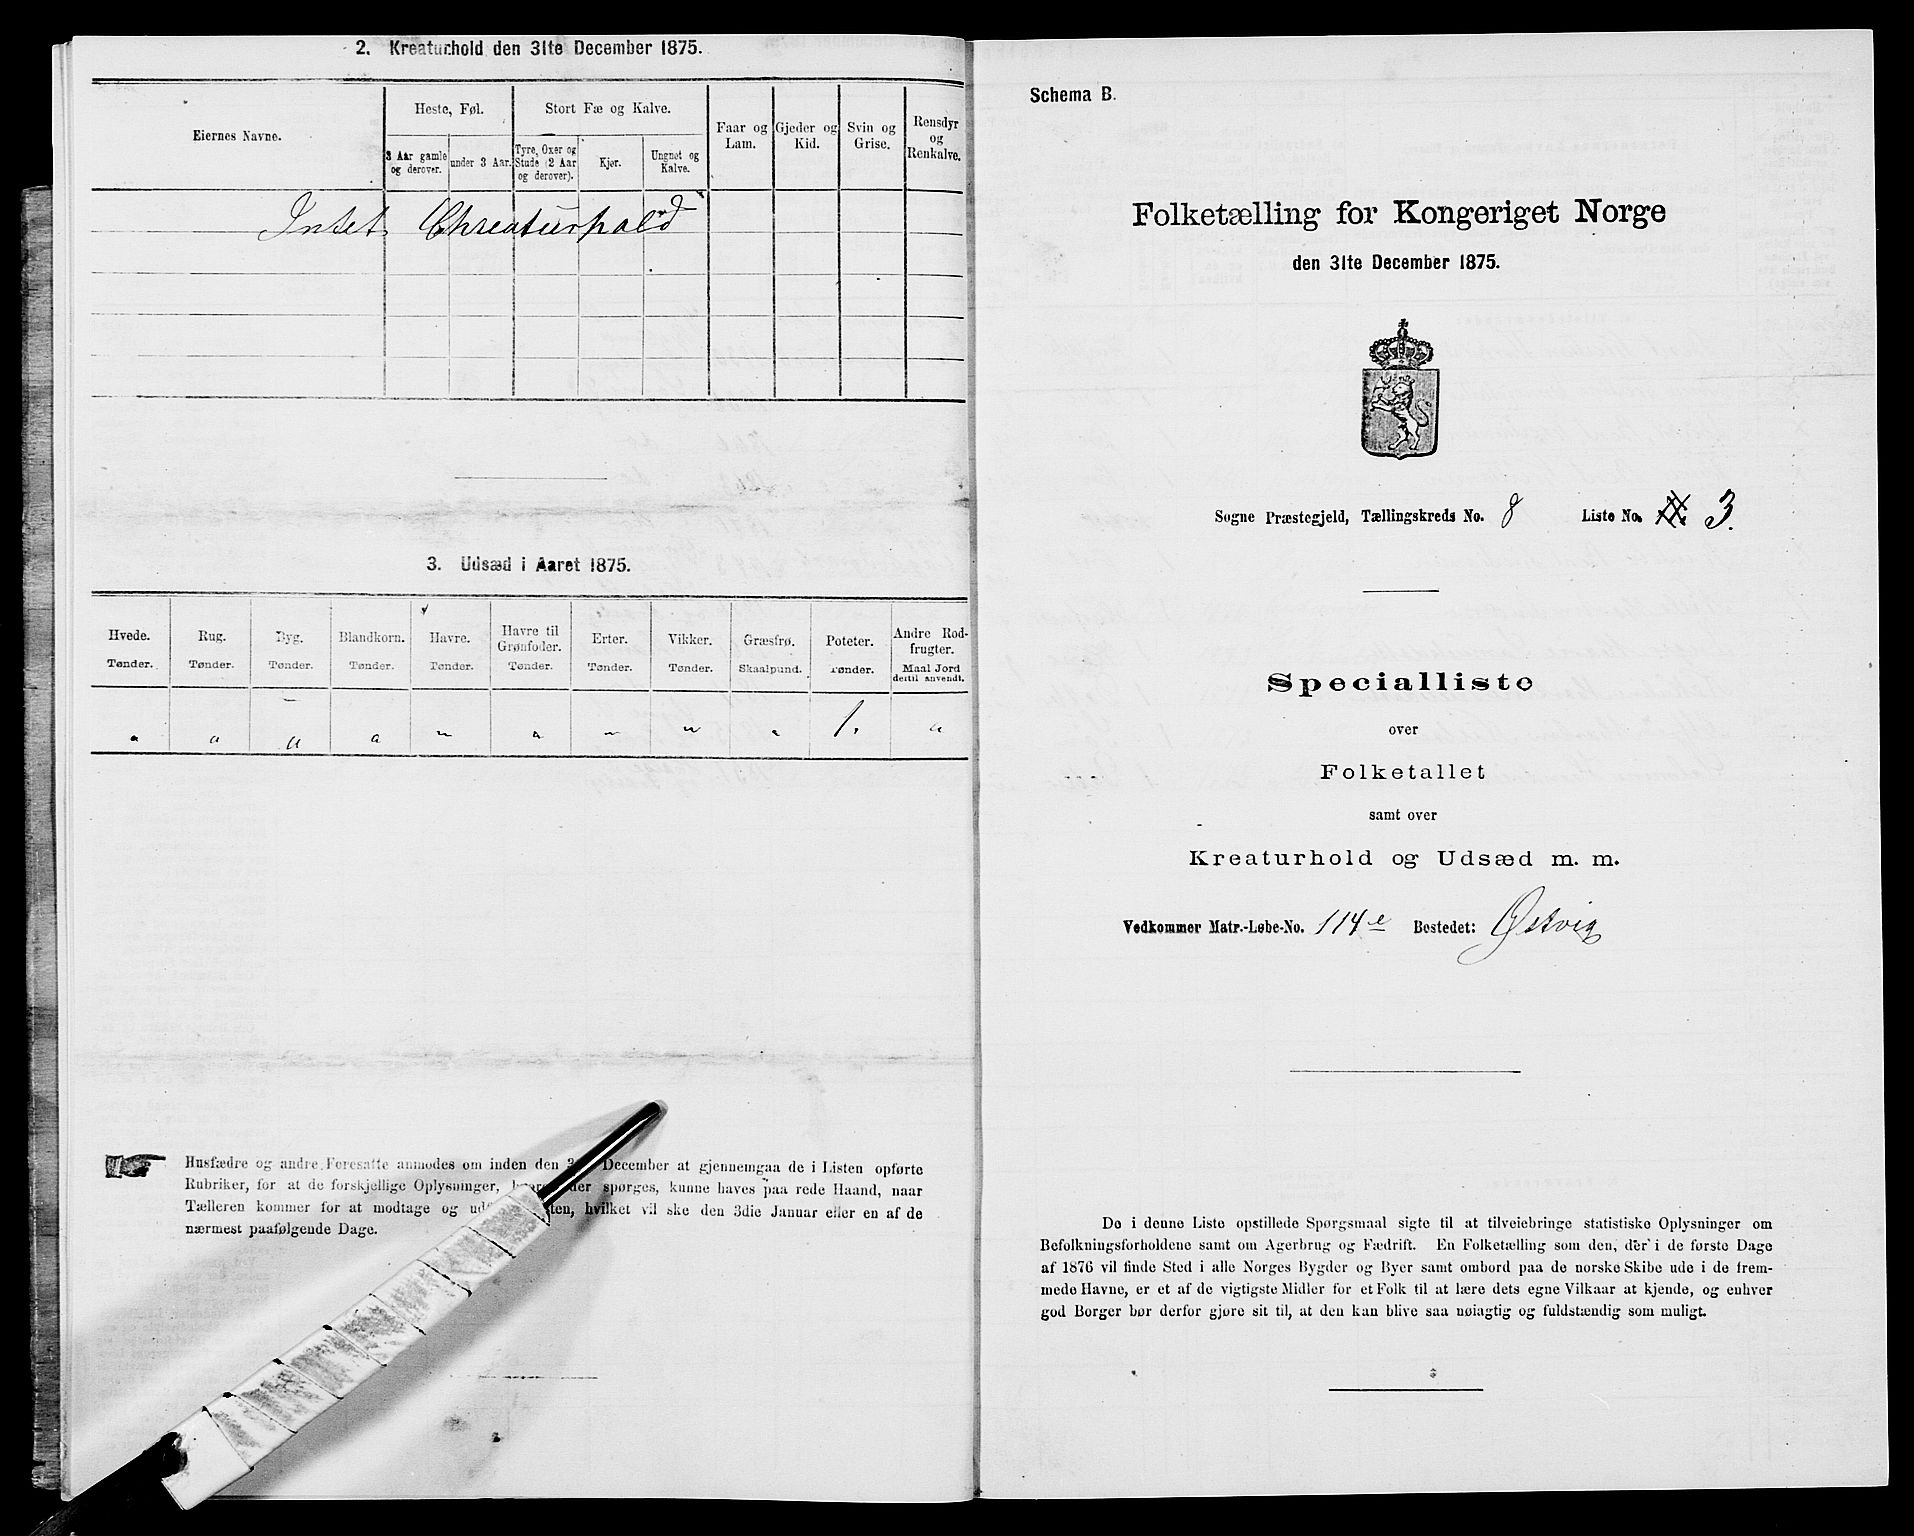 2. Kreaturhold den 31te December 1875.
Eiernes Navne.
Heste, Føl.
3 Aar gamle og derover.
under 3 Aar.
Stort Fæ og Kalve.
Tyre, Oxer og Stude (2 Aar og derover).
Kjør.
Ungnøt og Kalve.
Faar og Lam.
Gjeder og Kid.
Svin og Grise.
Rensdyr og Renkalve.
Intet Chreaturhold
3. Udsæd i Aaret 1875.
Hvede. Rug. Byg. Blandkorn. Havre. Havre til Grønfoder. Erter. Vikker. Græsfrø. Poteter. Andre Rodfrugter.
Tønder. Tønder. Tønder. Tønder. Tønder. Tønder. Tønder. Tønder. Skaalpund. Tønder. Maal Jord dertil anvendt.
" " " " " " " " " 1. "
Husfædre og andre Foresatte anmodes om inden den December at gjennemgaa de i Listen opførte
Rubriker, for at de forskjellige Oplysninger, der spørges, kunne haves paa rede Haand, naar
Tælleren kommer for at modtage og hvilket vil ske den 3die Januar eller en af de
nærmest paafølgende Dage.
Schema B.
Folketælling for Kongeriget Norge
den 31te December 1875.
Sogne Præstegjeld, Tællingskreds No. 8 Liste No. 3.
Specialliste
over
Folketallet
samt over
Kreaturhold og Udsæd m. m.
Vedkommer Matr.-Løbe-No. 114e Bostedet: Østvig
De i denne Liste opstillede Spørgsmaal sigte til at tilveiebringe statistiske Oplysninger om
Befolkningsforholdene samt om Agerbrug og Fædrift. En Folketælling som den, der i de første Dage
af 1876 vil finde Sted i alle Norges Bygder og Byer samt ombord paa de norske Skibe ude i de frem-
mede Havne, er et af de vigtigste Midler for et Folk til at lære dets egne Vilkaar at kjende, og enhver
god Borger bør derfor gjøre sit til, at den kan blive saa nøiagtig og fuldstændig som muligt.